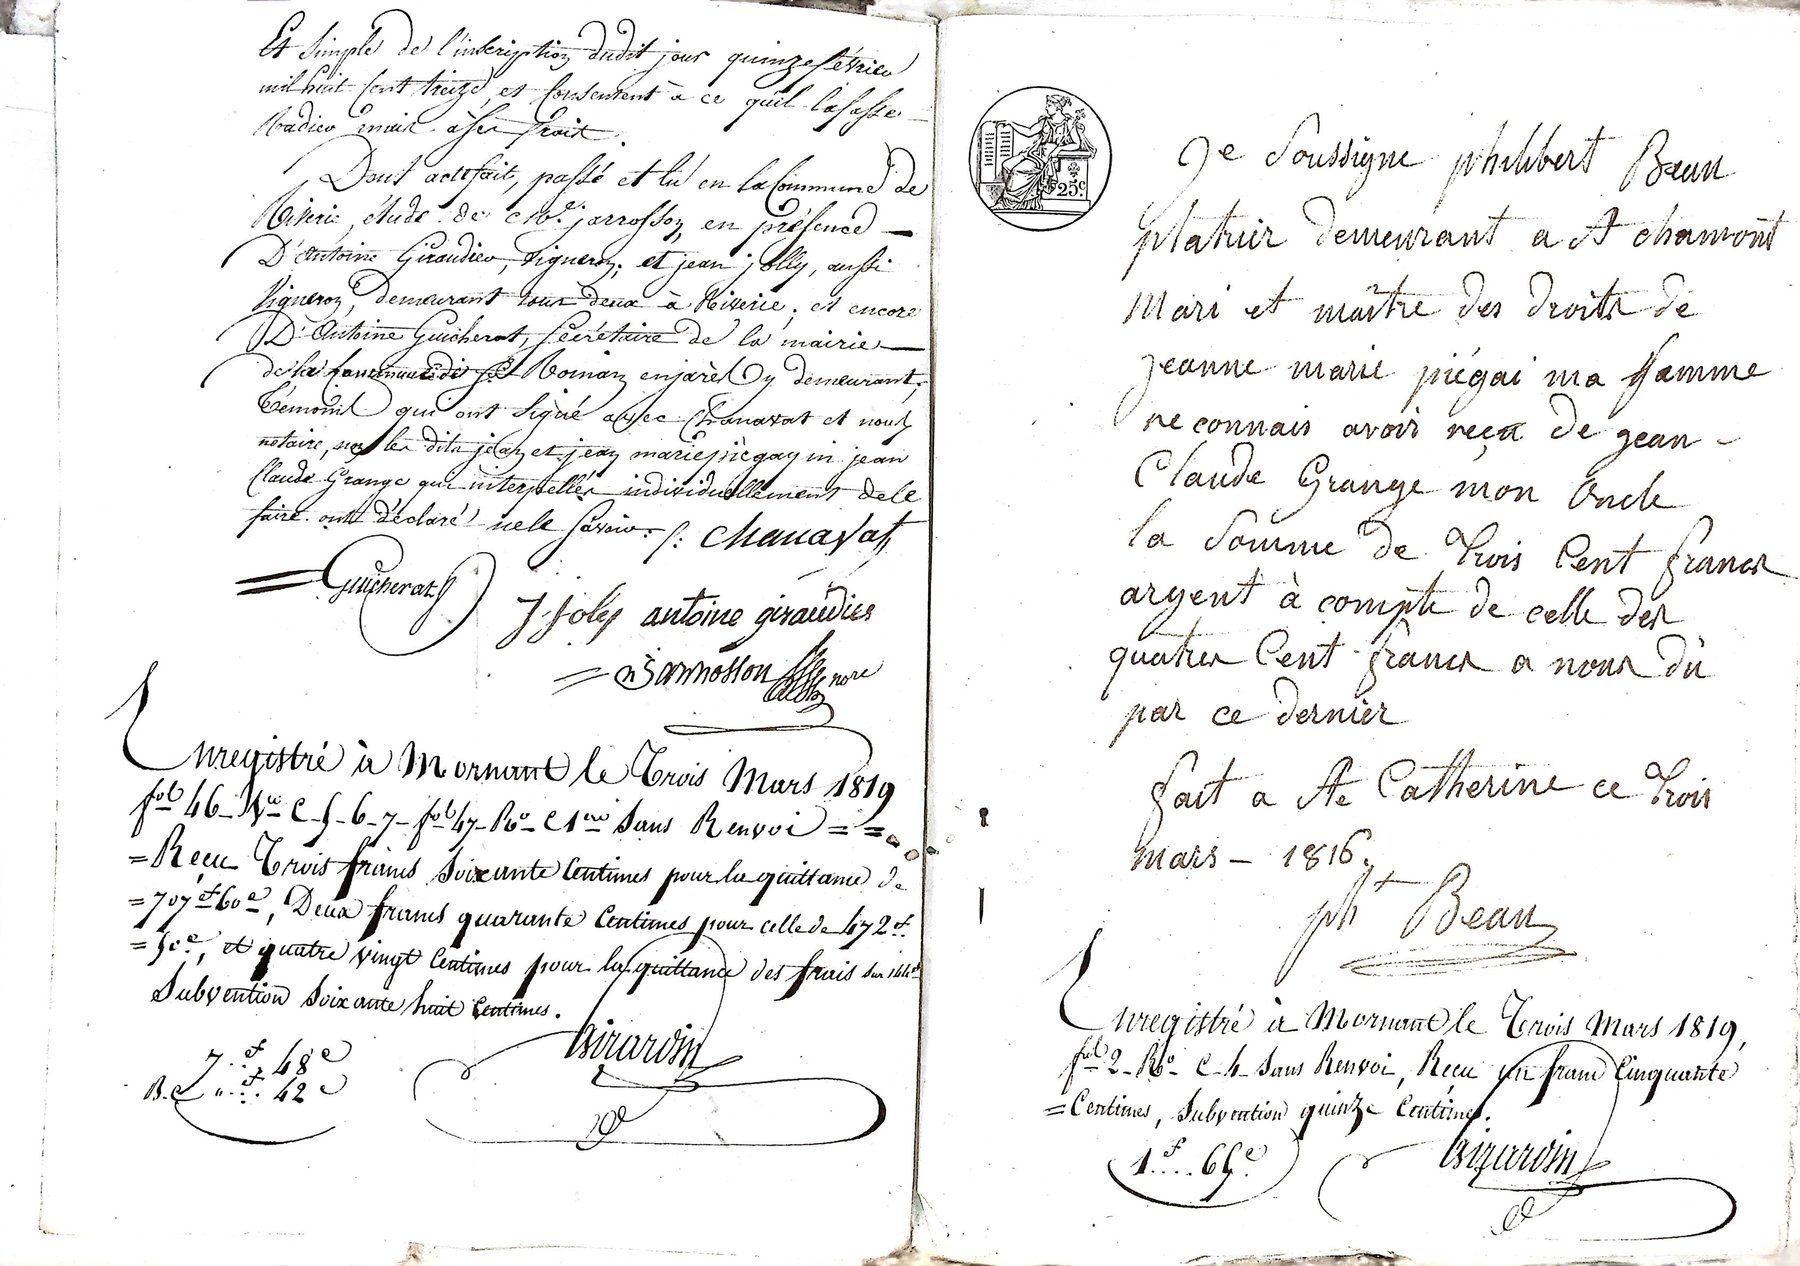 Et simple de l'inscription dudit jour quinze février
mil huit cent treize, et consentent à ce qu'il la fasse
Radier mais à ses frais.
Dont acte fait, passé et lu en la Commune de
Riverie, étude de Me. jarrosson, en présence
D'Antoine Giraudier, vigneron; et jean jolly, aussi
Vigneron, demeurant tous deux à Riverie; et encore
D'Antoine Guicherat, secrétaire de la mairie
de la Commune de St Romain enjarêt y demeurant,
Témoins qui ont signé avec Chanavat et nous
notaire, non les dits jean et jean marie piégay ni jean
Claude Grange qui interpellés individuellement de le
faire ont déclaré ne le savoir. f: Chanavat
Guicherat
J Joley antoine giraudier
Jarrosson nore
Enregistré à Mornant le Trois Mars 1819
fol 46 Vo C 5-6-7- fol 47 Ro C 1er Sans Renvoi = =
= Reçu Trois francs Soixante Centimes pour la quittance de
= 707 f 60 c, Deux francs quarante Centimes pour celle de 472 f.
= 50 c, et quatre vingt Centimes pour la quittance des frais sur 144 f
Subvention Soixante huit Centimes.
7 .. f 48 c
B.C " .. f 42 c
Girardin
25c.
Je Soussigne philibert Beau
platrier demeurant a St chamont
Mari et maître des droits de
jeanne marie piégai ma famme
reconnais avoir reça de jean
Claude Grange mon Oncle
la Somme de Trois Cent francs
argent à compte de celle des
quatres Cent francs a nous dû
par ce dernier
fait a Ste Catherine ce Trois
mars - 1816.
pht Beau
Enregistré à Mornant le Trois Mars 1819,
fol 2 Ro C 4 Sans Renvoi, Reçu un franc Cinquante
= Centimes, Subvention quinze Centimes.
1 f .... 65 c
Girardin